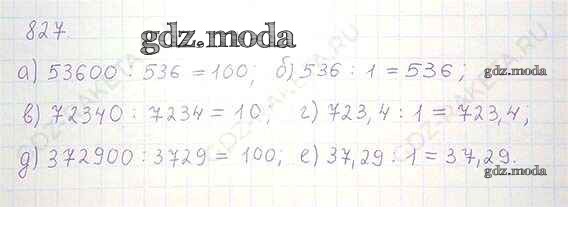 827.
gdz.moda
а) 53600 : 536 = 100; б) 536 : 1 = 536;
gdz.moda
в) 72340 : 7234 = 10, г) 723,4 : 1 = 723,4;
д) 372900 : 3729 = 100; е) 37,29 : 1 = 37,29.
gdz.moda